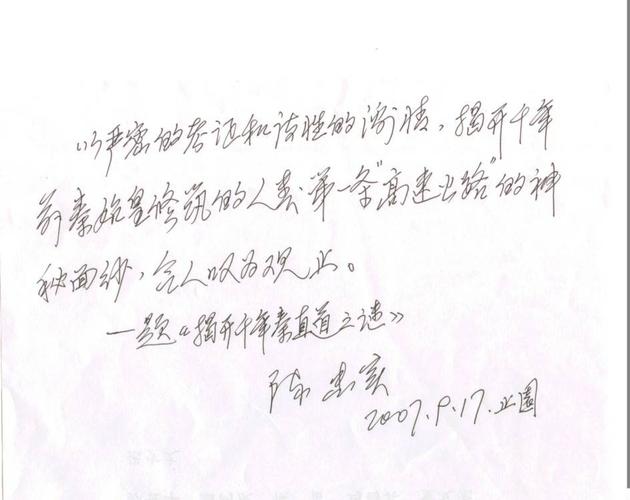 以严密的考证和诗性的激情，揭开千年
前秦始皇修筑的人类第一条“高速公路”的神
秘面纱，令人叹为观止。
—题《揭开千年秦直道之谜》
陈忠实
2007.9.17.